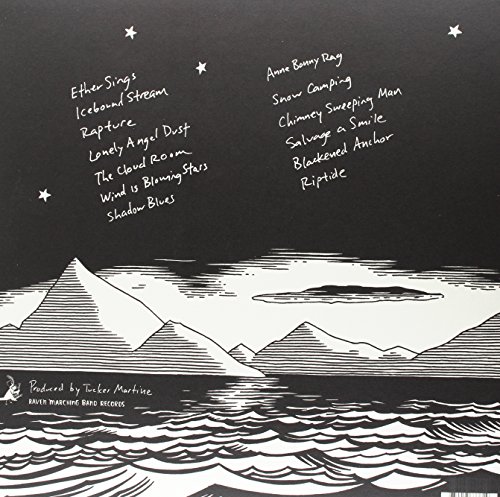 Ether Sings
Icebound Stream
Rapture
Lonely Angel Dust
The Cloud Room
Wind is Blowing Stars
Shadow Blues
Anne Bonny Rag
Snow Camping
Chimney Sweeping Man
Salvage a Smile
Blackened Anchor
Riptide
Produced by Tucker Martine
RAVEN MARCHING BAND RECORDS